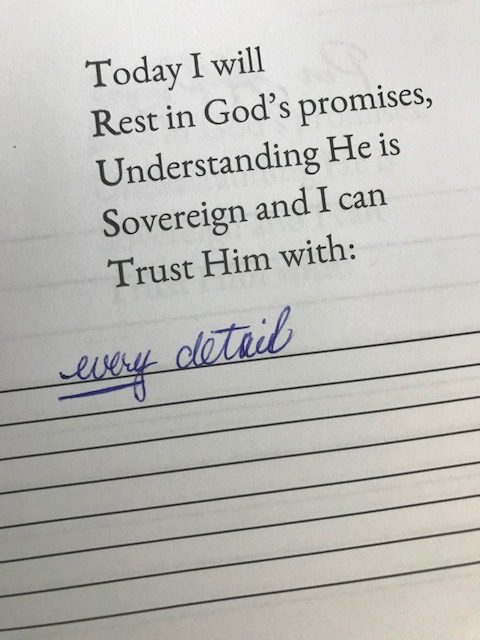 Today I will
Rest in God's promises,
Understanding He is
Sovereign and I can
Trust Him with:
every detail